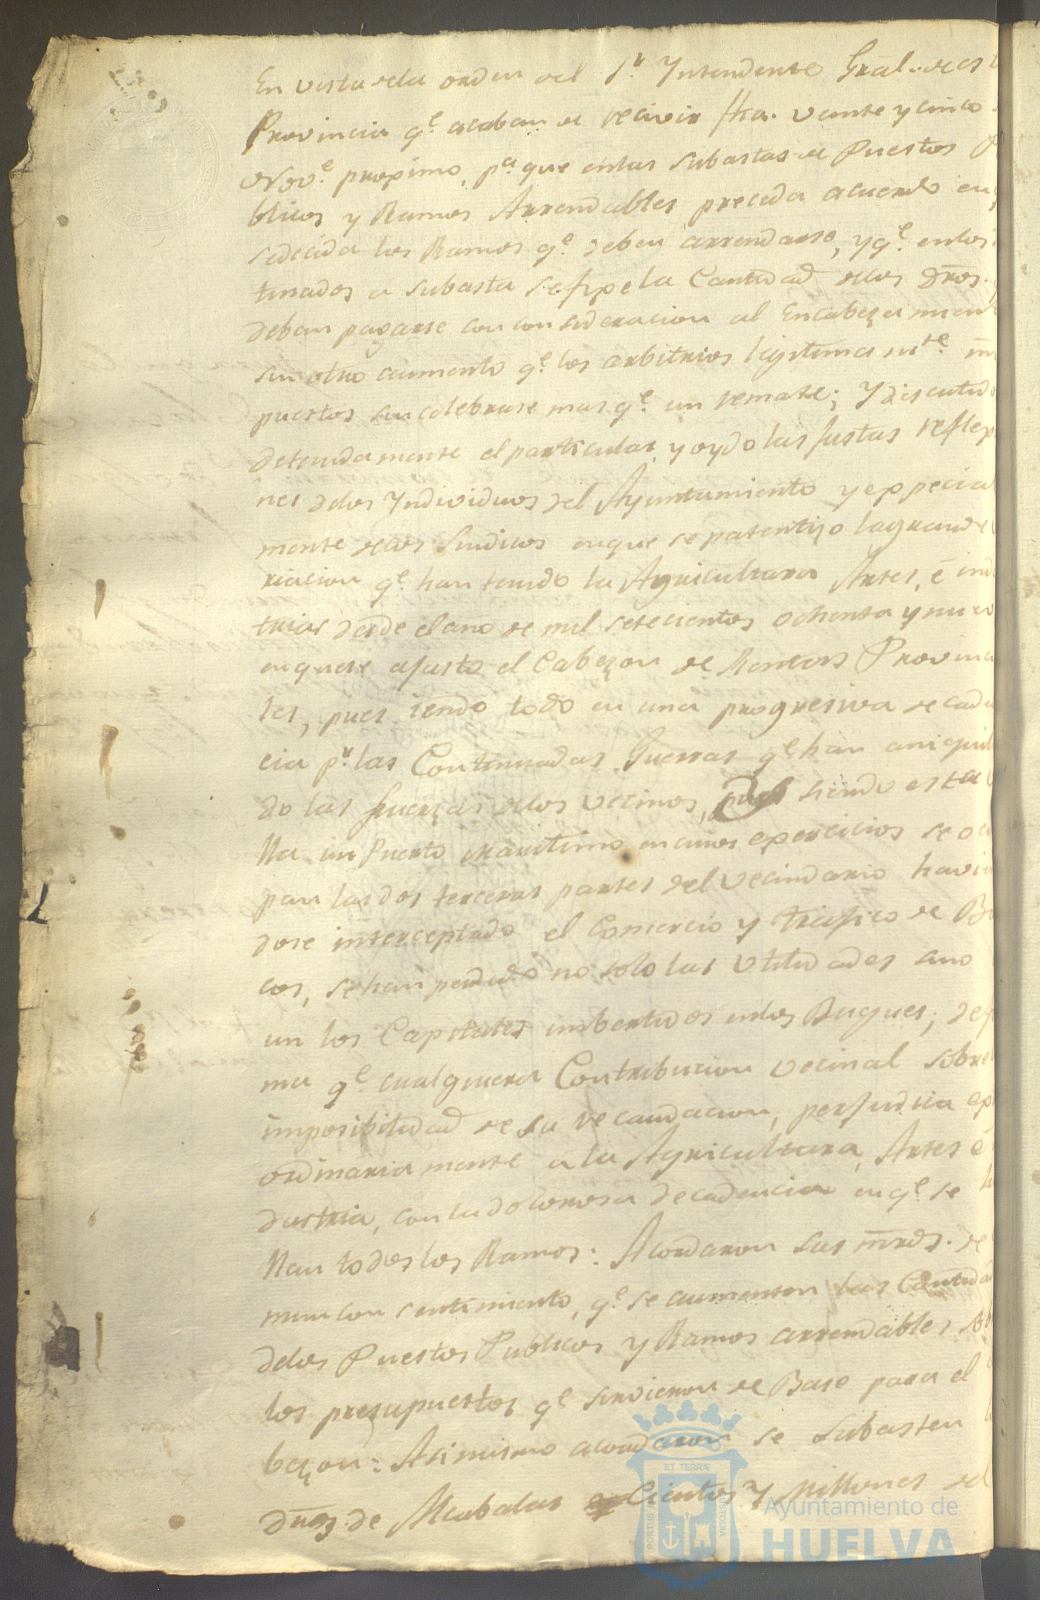 En vista dela orden del Sr. Yntendente Gral. de est
Provincia qe. acaban de recivir fha. veinte y cinco
Nove. proximo, pa. que enlas subastas de Puestos P
blicos y Ramos Arrendables preceda acuerdo en q
se decida los Ramos qe. deban arrendarse, y qe. enlos
tinados a subasta se fixe la Cantidad delos dros.
deban pagarse con consideracion al Encabezamien
sin otro aumento qe. los arbitrios legitimamte. im
puestos sin celebrarse mas qe. un remate; Y discutid
detenidamente el particular, y oydo las justas reflex
nes delos Yndividuos del Ayuntamiento y especia
mente delos Sindicos enque se patentizo la grande
riacion qe. han tenido la Agricultura Artes, é ind
trias desde el año de mil setecientos ochenta y nueve
enquese ajusto el Cabezon de Rentas Provincia
les, pues iendo todo en una progresiva decade
cia pr. las Continuadas Guerras qe. han aniquil
do las fuerzas delos vecinos, pues siendo esta V
lla un Puerto maritimo en cuios exercicios se ocu
pan las dos terceras partes del vecindario havien
dose interceptado el Comercio y trafico de Bar
cos, se han perdido no solo las utilidades sino
un los Capitales imbertidos enlos Buques; de f
ma qe. cualquiera Contribucion vecinal sobre
imposibilidad de su recaudacion, perjudica ex
ordinariamente a la Agricultura, Artes é
dustria, con la dolorosa decadencia en qe. se h
llan todos los Ramos: Acordaron sus mrds. de
mun consentimiento, qe. se aumenten las Cantida
delos Puestos Publicos y Ramos arrendables so
los presupuestos qe. sirvieron de Base para el
bezon: Asimismo acordaron se subasten l
dros. de Alcabalas Cientos y Millones del
ET TERRÆ
PORTUS MARIS
CUSTODIA
Ayuntamiento de
HUELVA